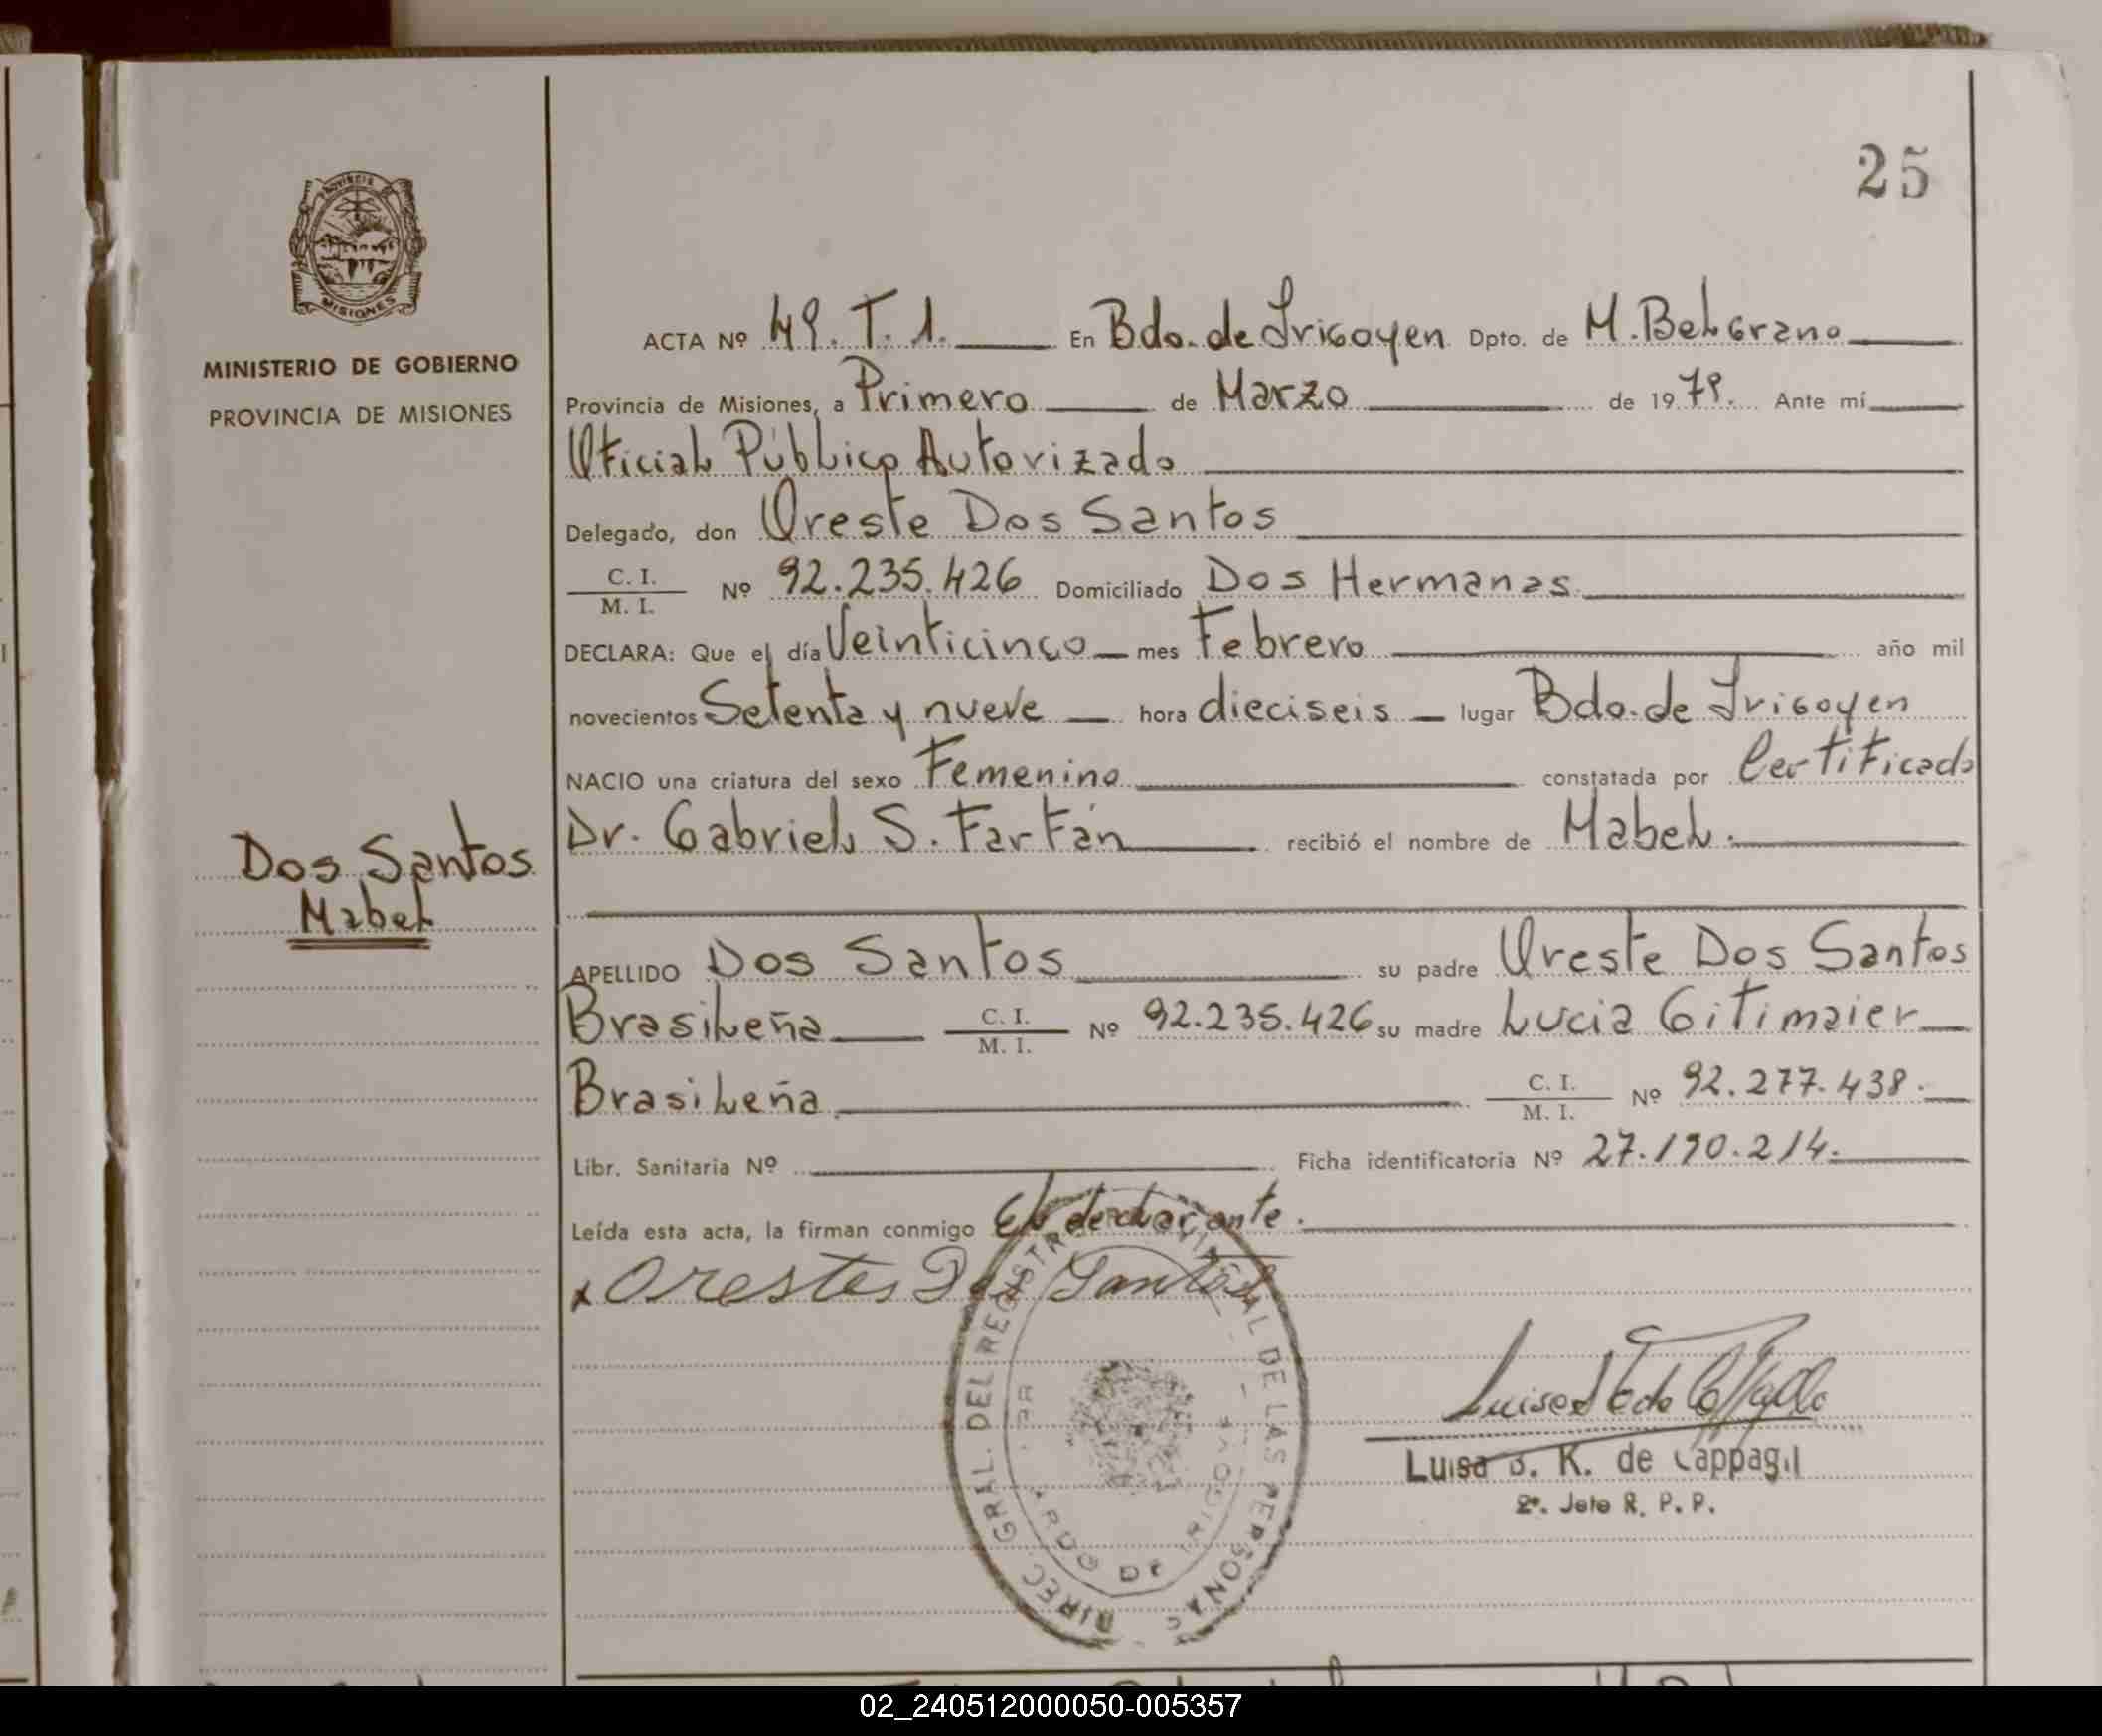 25
PROVINCIA
MISIONES
MINISTERIO DE GOBIERNO
PROVINCIA DE MISIONES
Dos Santos
Mabel
ACTA Nº 49. T. 1. En Bdo. de Irigoyen Dpto. de M. Belgrano
Provincia de Misiones, a Primero de Marzo de 1979. Ante mí
Oficial Público Autorizado
Delegado, don Oreste Dos Santos
C. I. / M. I. Nº 92.235.426 Domiciliado Dos Hermanas
DECLARA: Que el día Veinticinco mes Febrero año mil
novecientos Setenta y nueve hora dieciseis lugar Bdo. de Irigoyen
NACIO una criatura del sexo Femenino constatada por Certificado
Dr. Gabriel S. Farfán recibió el nombre de Mabel.
APELLIDO Dos Santos su padre Oreste Dos Santos
Brasileña C. I. / M. I. Nº 92.235.426 su madre Lucia Gitimaier
Brasileña C. I. / M. I. Nº 92.277.438.
Libr. Sanitaria Nº Ficha identificatoria Nº 27.190.214.
Leída esta acta, la firman conmigo El declarante.
x Orestes Dos Santos
DIREC. GRAL. DEL REGISTRO DE LAS PERSONAS
DE IRIGOYEN
Luisa K. de Cappagli
2º. Jefe R. P. P.
02_240512000050-005357